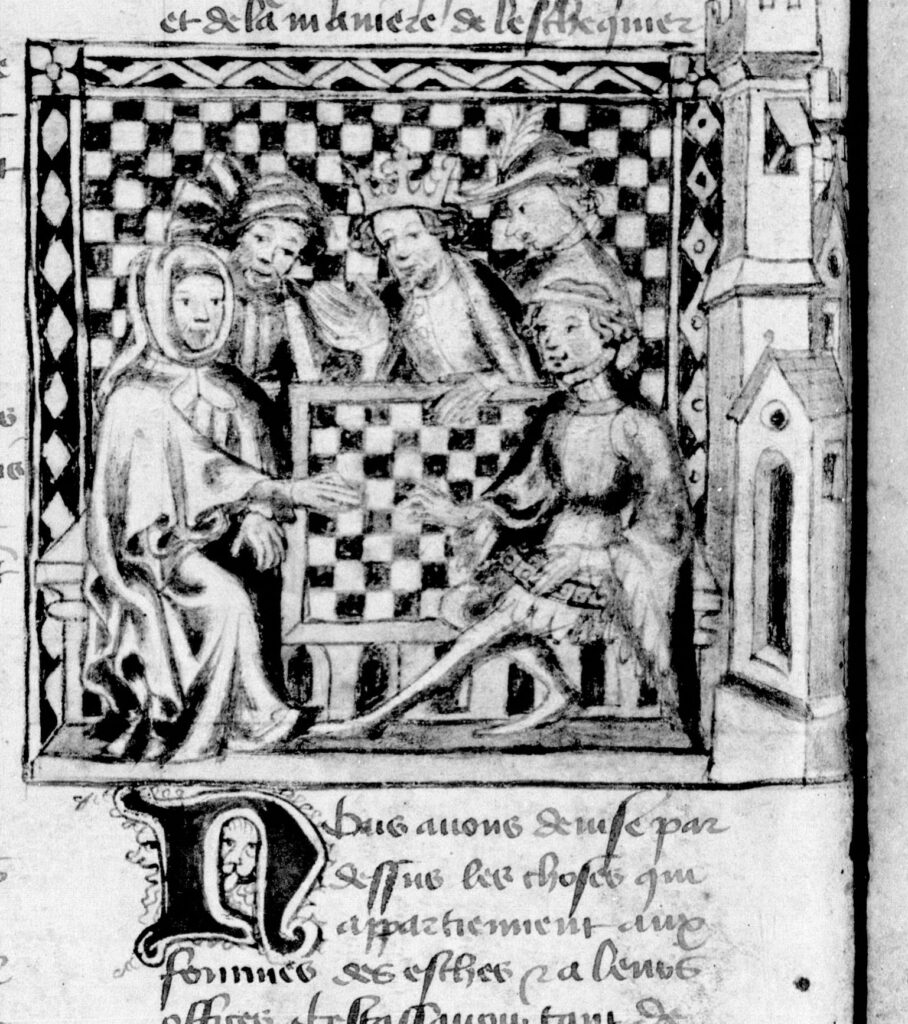 et de la maniere de leschequier
Nous auons deuise par
dessus les choses qui
appartiennent aux
fourmes des esches et a leurs
offices tant de